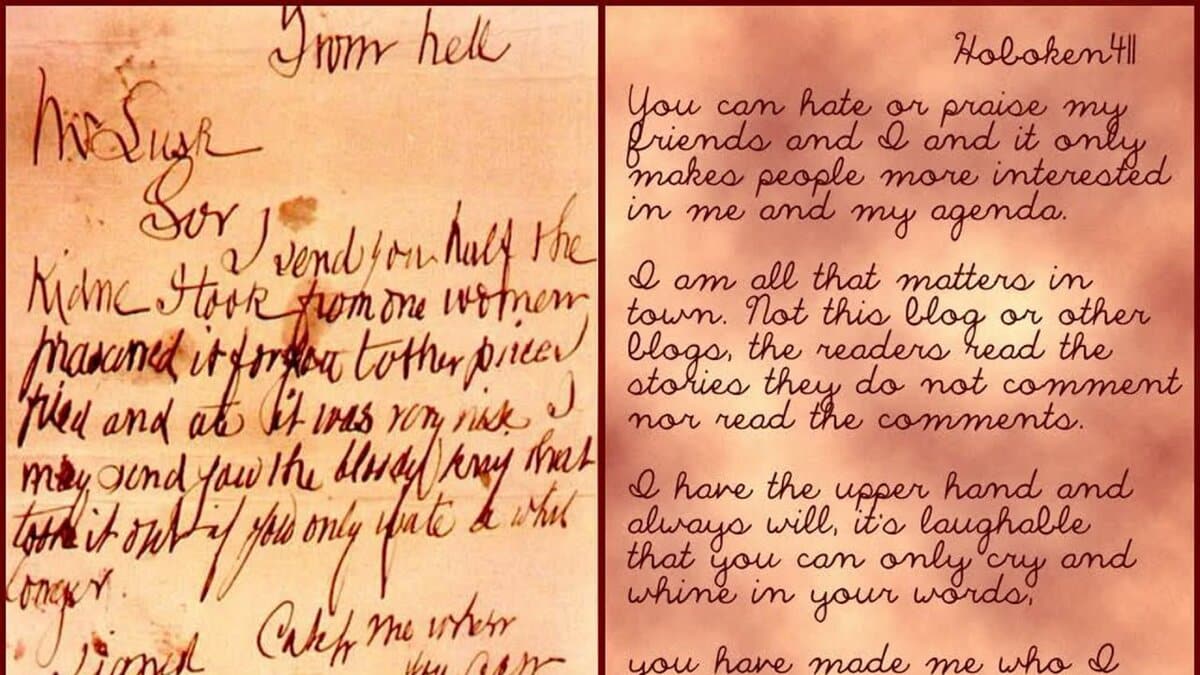 From hell
Mr Lusk
Sor
I send you half the
Kidne I took from one women
prasarved it for you tother piece I
fried and ate it was very nise I
may send you the bloody knif that
took it out if you only wate a whil
longer.
signed Catch me when
you can
Hoboken411
You can hate or praise my
friends and I and it only
makes people more interested
in me and my agenda.
I am all that matters in
town. Not this blog or other
blogs, the readers read the
stories they do not comment
nor read the comments.
I have the upper hand and
always will, it's laughable
that you can only cry and
whine in your words,
you have made me who I